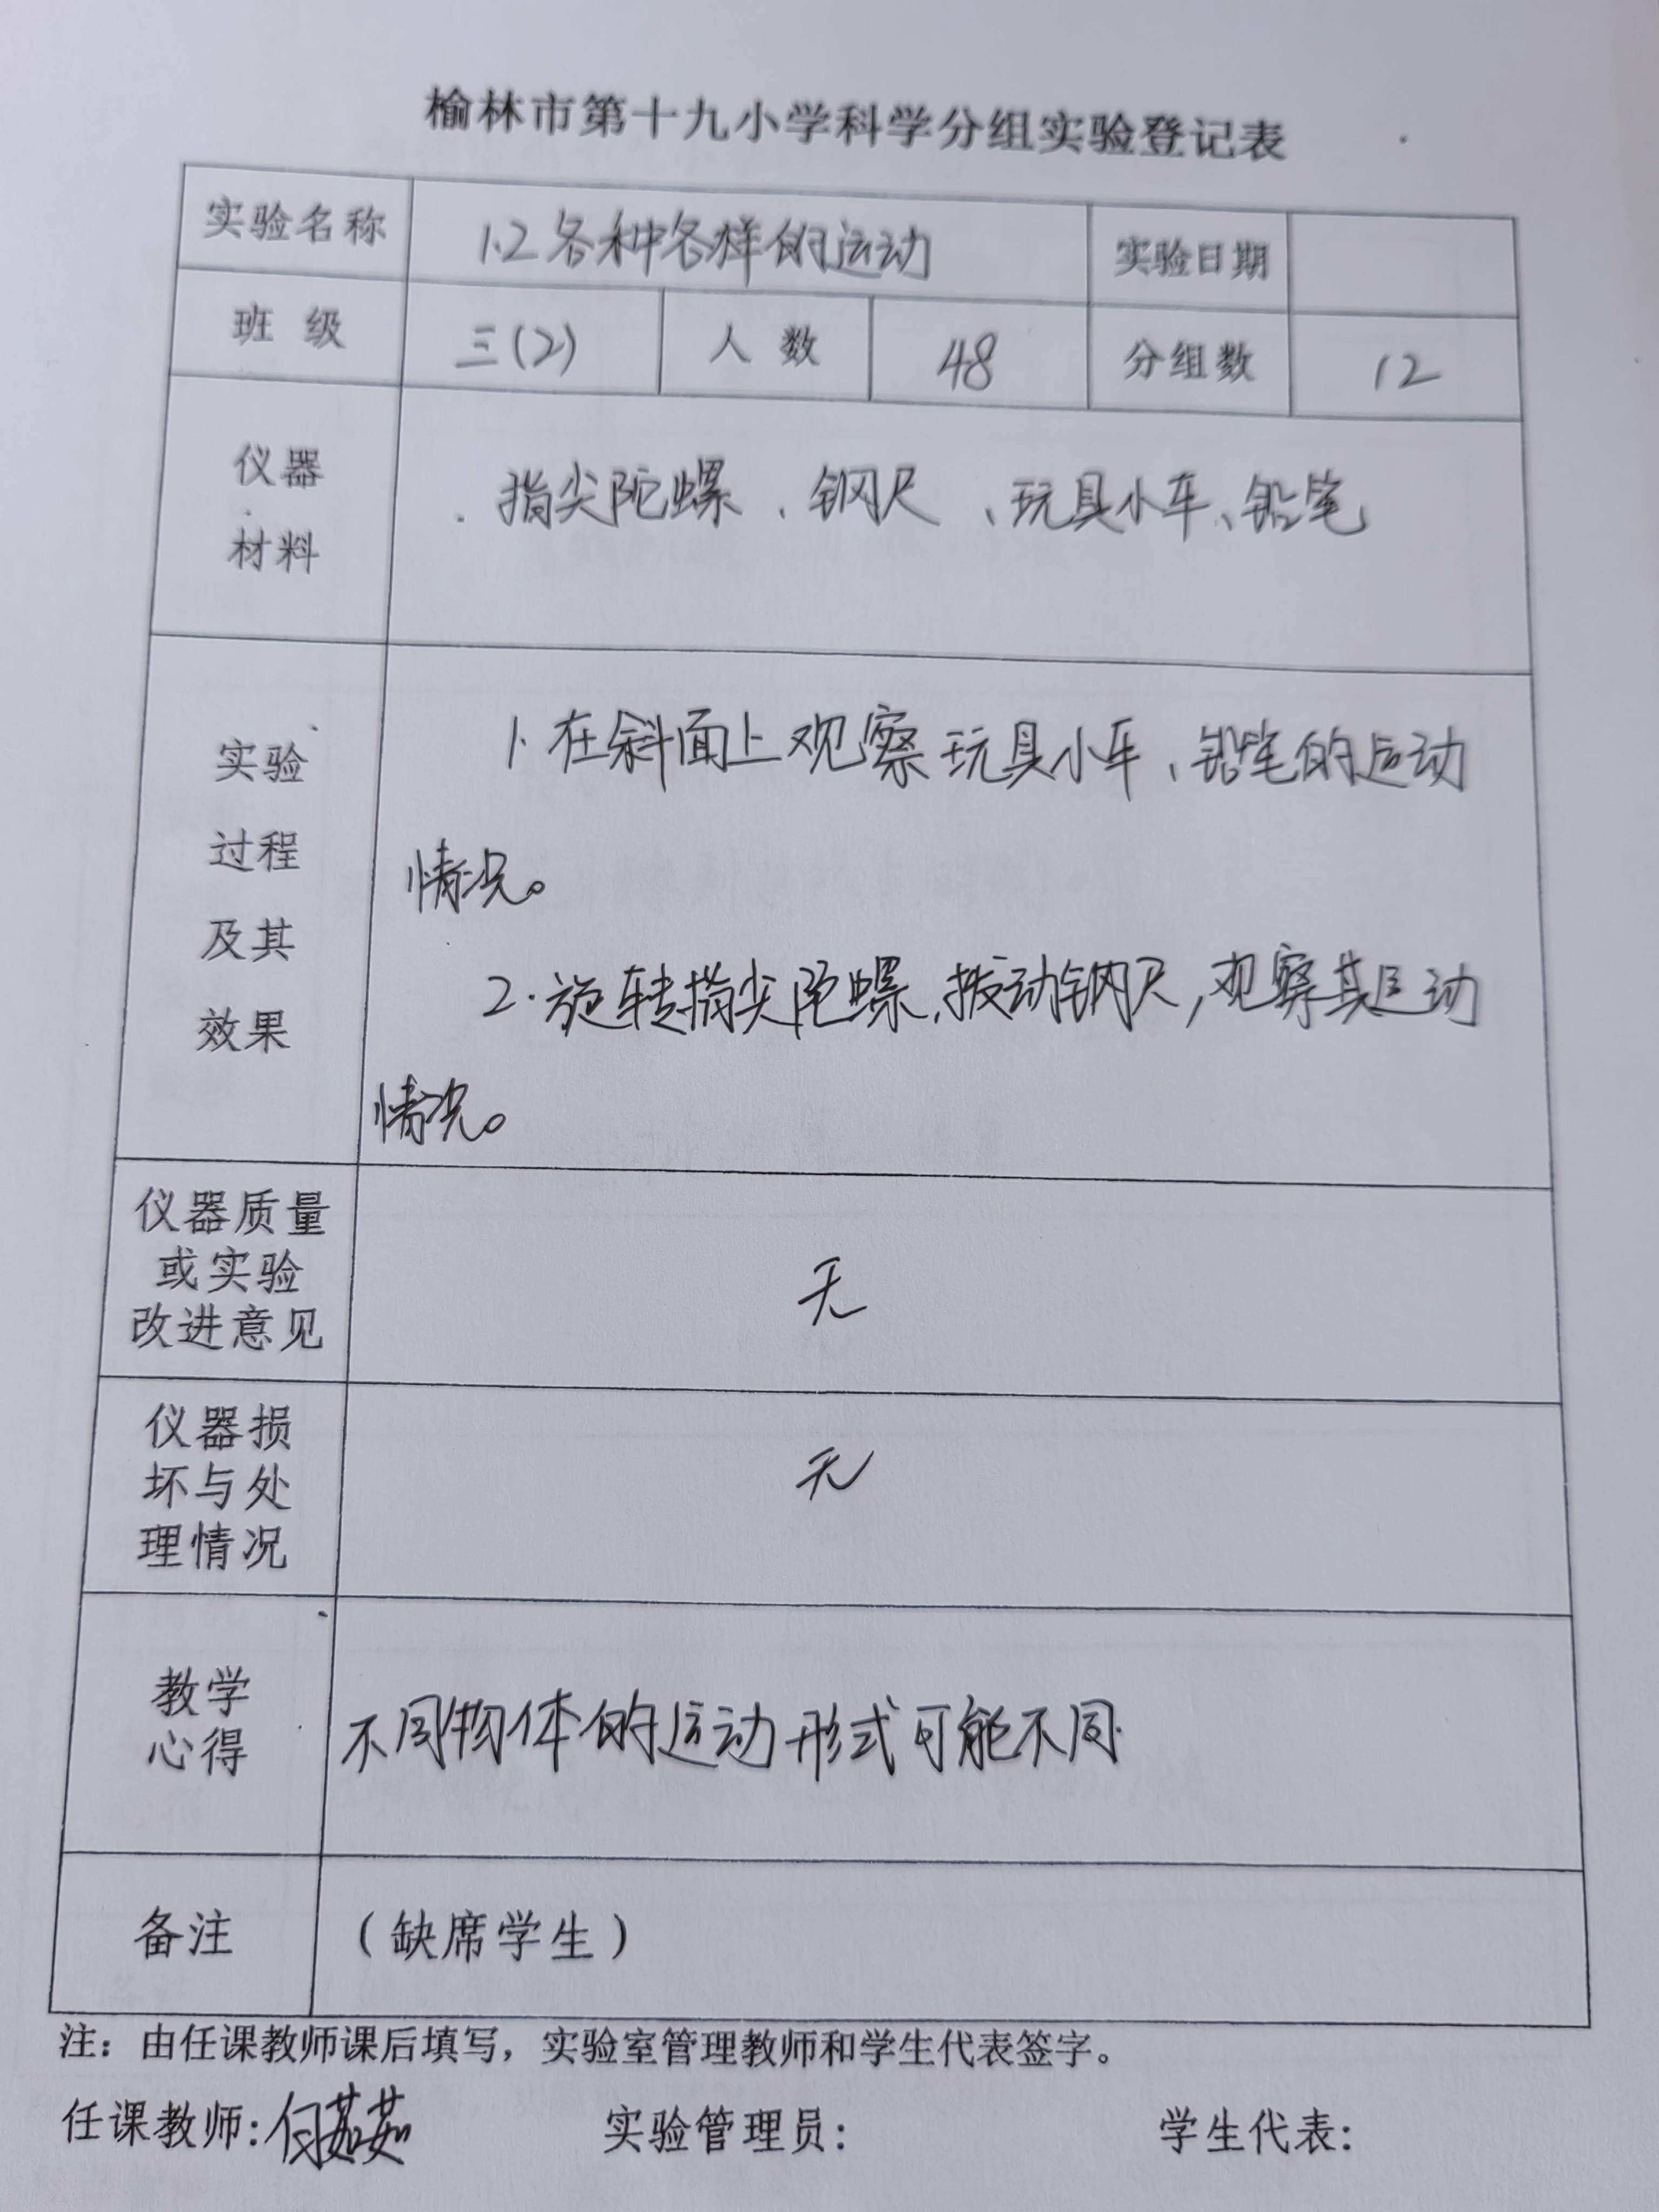 榆林市第十九小学科学分组实验登记表
实验名称 1.2各种各样的运动 实验日期
班级 三(2) 人数 48 分组数 12
仪器
材料
指尖陀螺、钢尺、玩具小车、铅笔
实验
过程
及其
效果
1.在斜面上观察玩具小车、铅笔的运动
情况。
2.旋转指尖陀螺,拨动钢尺,观察其运动
情况。
仪器质量
或实验
改进意见
无
仪器损
坏与处
理情况
无
教学
心得
不同物体的运动形式可能不同
备注 (缺席学生)
注：由任课教师课后填写，实验室管理教师和学生代表签字。
任课教师:何茹茹 实验管理员: 学生代表: